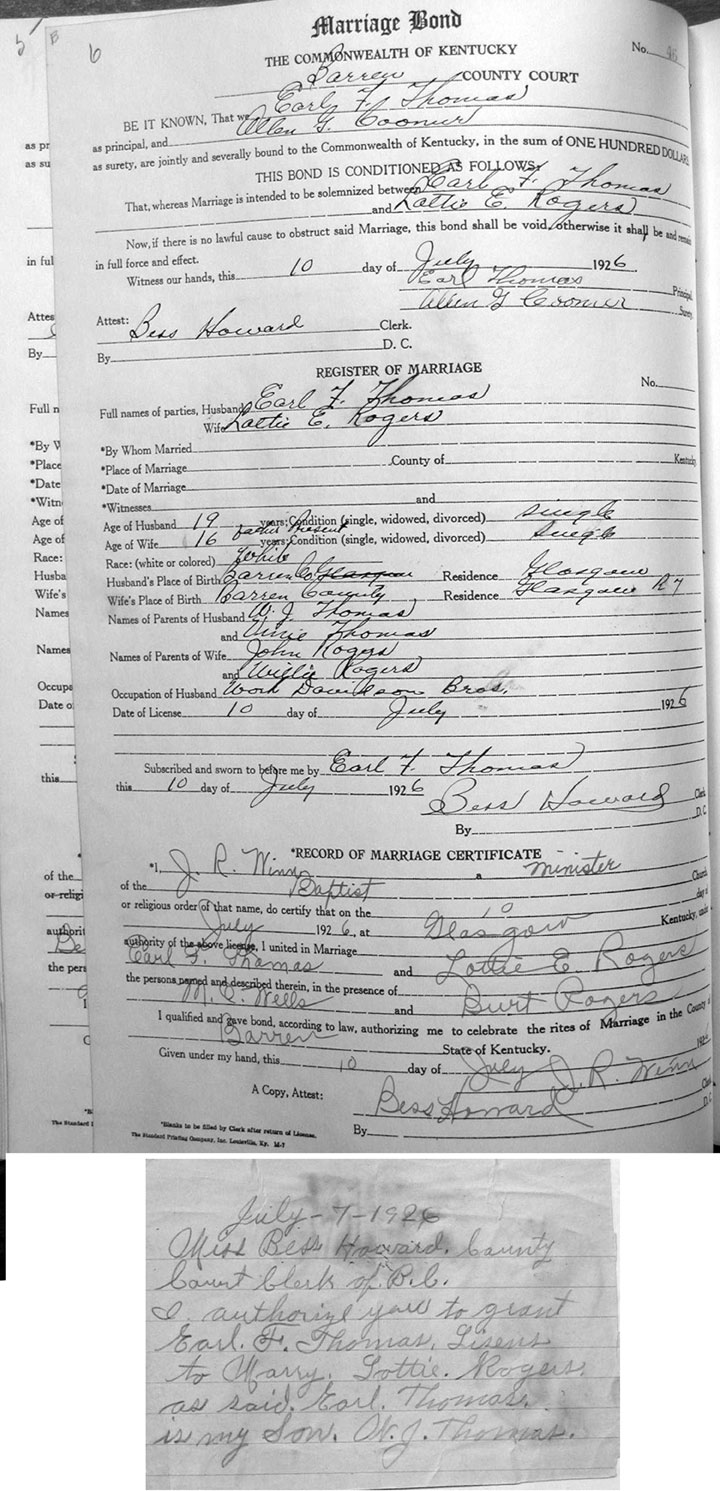 5
B
6
Marriage Bond
No. 46
THE COMMONWEALTH OF KENTUCKY
Barren COUNTY COURT
BE IT KNOWN, That we Earl F. Thomas
as principal, and Allen G. Coomer
as surety, are jointly and severally bound to the Commonwealth of Kentucky, in the sum of ONE HUNDRED DOLLARS
THIS BOND IS CONDITIONED AS FOLLOWS:
That, whereas Marriage is intended to be solemnized between Earl F. Thomas
and Lottie E. Rogers
Now, if there is no lawful cause to obstruct said Marriage, this bond shall be void, otherwise it shall be and remain
in full force and effect.
Witness our hands, this 10 day of July 1926
Earl Thomas Principal
Allen G Coomer Surety
Attest: Bess Howard Clerk.
By D. C.
REGISTER OF MARRIAGE
No.
Full names of parties, Husband Earl F. Thomas
Wife Lottie E. Rogers
*By Whom Married
*Place of Marriage County of Kentucky
*Date of Marriage
*Witnesses and
Age of Husband 19 years; Condition (single, widowed, divorced) single
father present
Age of Wife 16 years; Condition (single, widowed, divorced) single
Race: (white or colored) White
Husband's Place of Birth Barren Co Glasgow Residence Glasgow
Wife's Place of Birth Barren County Residence Glasgow R 7
Names of Parents of Husband W. J. Thomas
and Thomas
Names of Parents of Wife John Rogers
and Willie Rogers
Occupation of Husband Work Davidson Bros.
Date of License 10 day of July 1926
Subscribed and sworn to before me by Earl F. Thomas
this 10 day of July 1926
Bess Howard Clerk
By D. C.
*RECORD OF MARRIAGE CERTIFICATE
*I, J. R. Winn a minister
of the Baptist Church
or religious order of that name, do certify that on the 10
July 1926, at Glasgow Kentucky, under
authority of the above license, I united in Marriage
Earl F. Thomas and Lottie E. Rogers
the persons named and described therein, in the presence of
M. C. Wells and Burt Rogers
I qualified and gave bond, according to law, authorizing me to celebrate the rites of Marriage in the County of
Barren State of Kentucky.
Given under my hand, this 10 day of July 192
J. R. Winn
A Copy, Attest: Bess Howard Clerk
By D. C.
*Blanks to be filled by Clerk after return of License.
The Standard Printing Company, Inc. Louisville, Ky. M-7
July-7-1926
Miss Bess Howard. County
Court Clerk of B.C.
I. authorize you to grant
Earl. F. Thomas. Lisens
to Marry. Lottie. Rogers.
as said. Earl. Thomas.
is my Son. W. J. Thomas.